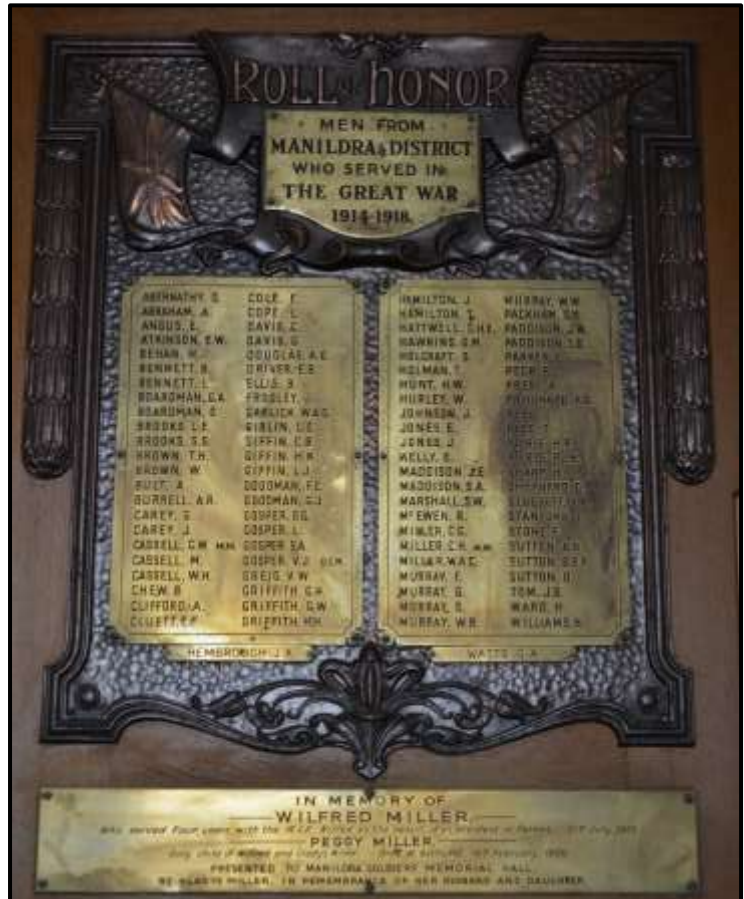 ROLL of HONOR
MEN FROM
MANILDRA & DISTRICT
WHO SERVED IN
THE GREAT WAR
1914-1918.
ABERNATHY, G.
ABRAHAM, A.
ANGUS, E.
ATKINSON, S.W.
BEHAN, M.
BENNETT, B.
BENNETT, L.
BOARDMAN, G.A.
BOARDMAN, C.
BROOKS, L.E.
BROOKS, S.S.
BROWN, T.H.
BROWN, W.
BUILT, A.
BURRELL, A.R.
CAREY, G.
CAREY, J.
CASSELL, C.W. M.M.
CASSELL, M.
CASSELL, W.H.
CHEW, B.
CLIFFORD, A.
CLUETT, E.F.
COLE, F.
COPE, L.
DAVIS, C.
DAVIS, G.
DOUGLAS, A.E.
DRIVER, E.B.
ELLIS, B.
FROGLEY, J.
GARLICK, W.A.G.
GIBLIN, L.C.
GIFFIN, C.B.
GIFFIN, H.K.
GIFFIN, L.J.
GOODMAN, F.C.
GOODMAN, G.J.
GOSPER, G.G.
GOSPER, L.
GOSPER, S.A.
GOSPER, V.J. D.C.M.
GREIG, V.W.
GRIFFITH, G.H.
GRIFFITH, G.W.
GRIFFITH, H.H.
HEMBROUGH, J.A.
HAMILTON, J.
HAMILTON, T.
HATTWELL, C.H.E.
HAWKINS, G.H.
HOLCRAFT, S.
HOLMAN, T.
HUNT, H.W.
HURLEY, W.
JOHNSON, J.
JONES, E.
JONES, J.
KELLY, E.
MADDISON, J.E.
MADDISON, S.A.
MARSHALL, S.W.
McEWEN, R.
MILLER, C.G.
MILLER, C.H. M.M.
MILLAR, W.A.C.
MURRAY, F.
MURRAY, G.
MURRAY, S.
MURRAY, W.B.
MURRAY, W.W.
PACKHAM, S.H.
PADDISON, J.W.
PADDISON, T.G.
PARKER,
PECK,
STANFORD,
STONE, F.
SUTTON, A.V.
SUTTON, B.E.F.
SUTTON, O.
TOM, J.S.
WARD, H.
WILLIAMS, H.
WATTS, G.A.
IN MEMORY OF
WILFRED MILLER
who served Four years with the A.I.F. Killed as the result of an accident at Parkes, July,
PEGGY MILLER
Only child of Wilfred and Gladys Miller February,
PRESENTED TO MANILDRA SOLDIERS MEMORIAL HALL
BY GLADYS MILLER, IN REMEMBRANCE OF HER HUSBAND AND DAUGHTER